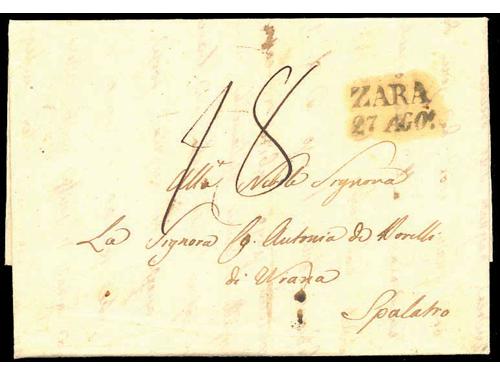 ZARA
27 AGO.
18
Alla Nobile Signora
La Signora Cg. Antonia de Borelli
di Vrana
Spalatro